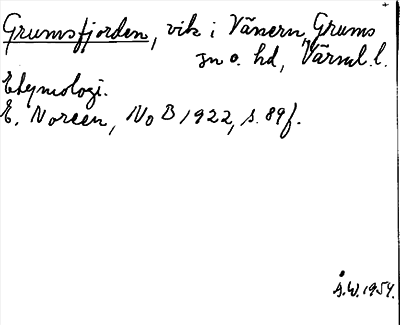 Grumsfjorden, vik i Vänern, Grums
sn o. hd, Värml. l.
Etymologi.
E. Noreen, NoB 1922, s. 89 f.
Å.W. 1954.